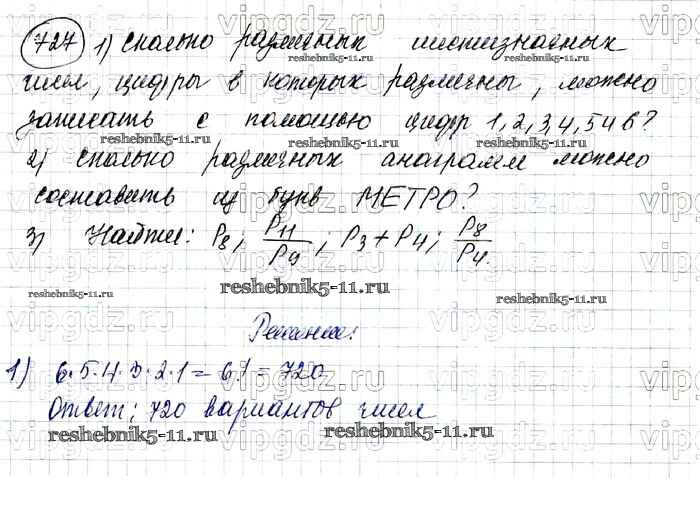 727 1) Сколько различных шестизначных
чисел, цифры в которых различны, можно
записать с помощью цифр 1, 2, 3, 4, 5 и 6?
2) Сколько различных анаграмм можно
составить из букв МЕТРО?
3) Найти: P8; P11/P9; P3 + P4; P8/P4.
Решение:
1) 6·5·4·3·2·1 = 6! = 720
Ответ: 720 вариантов чисел
vipgdz.ru
reshebnik5-11.ru